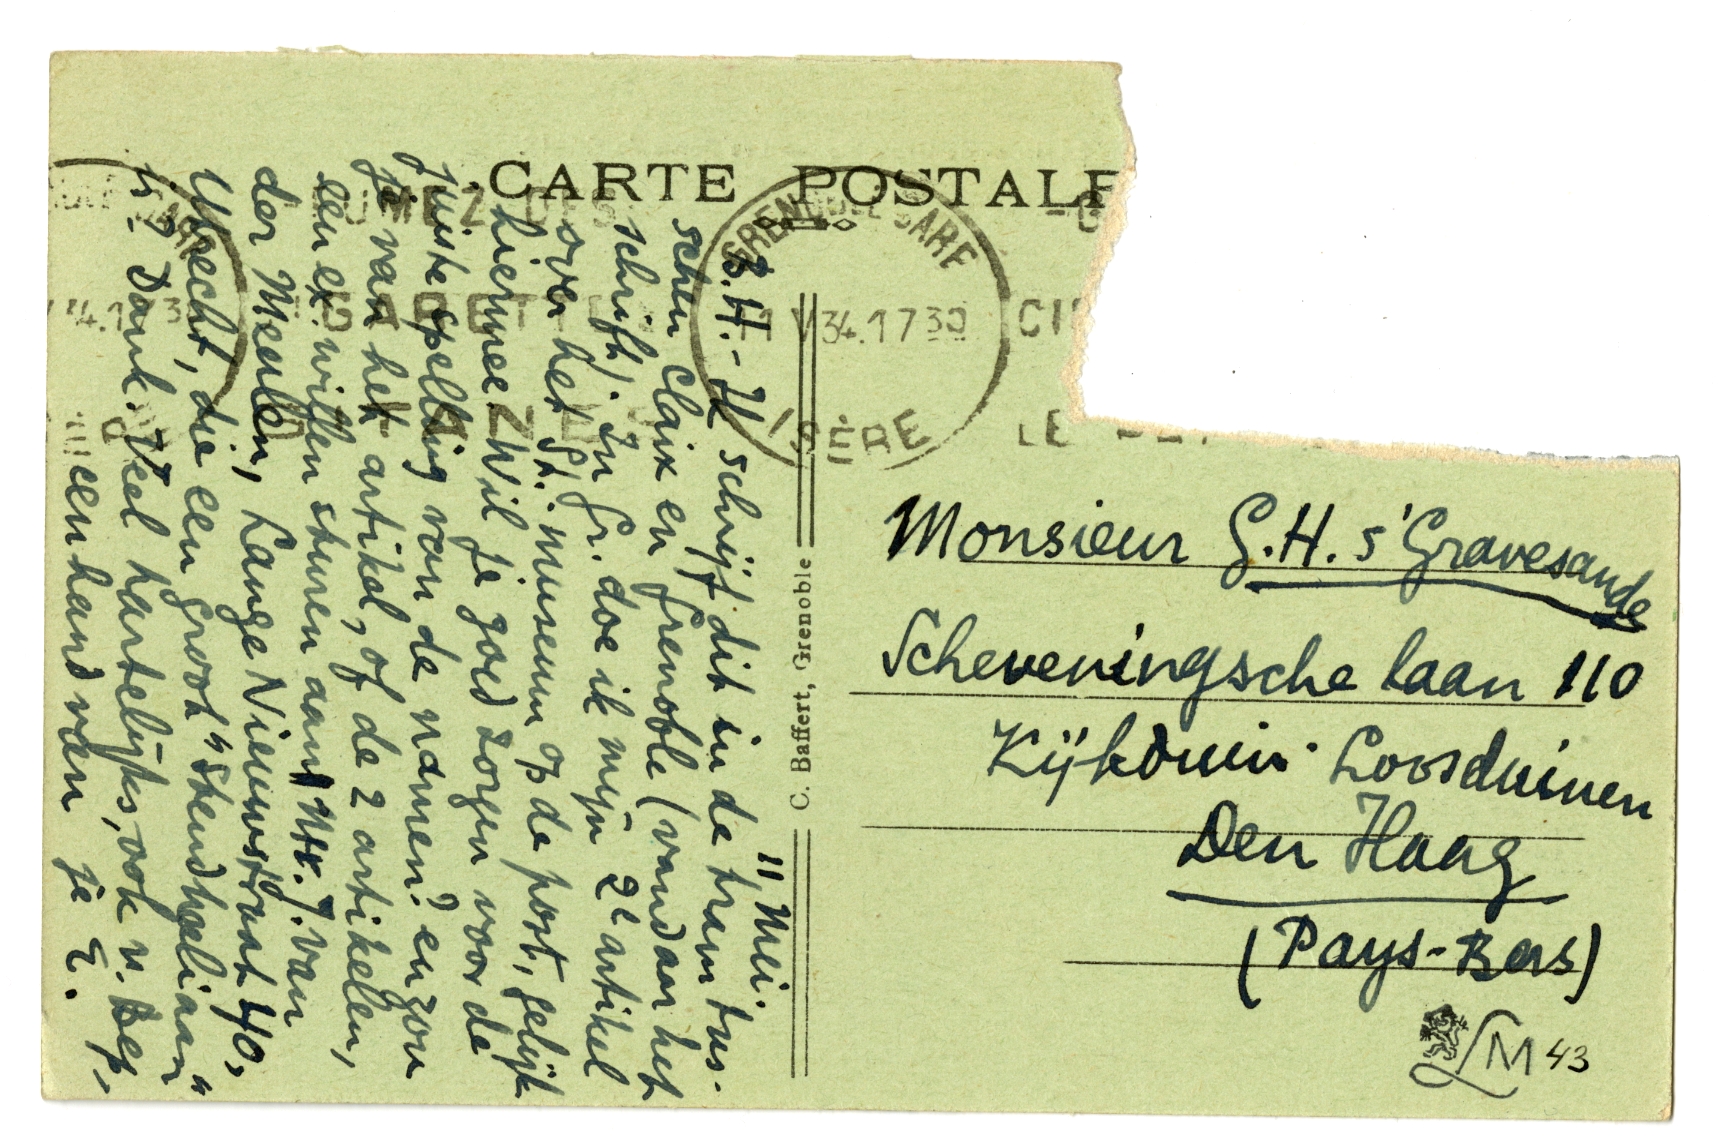 CARTE POSTALE
11 Mei.
B.H. - Ik schrijf dit in de tram tus-
schen Claix en Grenoble (vandaar het
schrift). In Gr. doe ik mijn 2e artikel
over het St. museum op de post, gelijk
hiermee. Wil je goed zorgen voor de
juiste spelling van de namen? en zou
je van het artikel, of de 2 artikelen,
een ex. willen sturen aan Mr. J. van
der Meulen, Lange Nieuwstraat 40,
Utrecht, die een groot "Stendhaliaan"
is? Dank. Veel hartelijks, ook v. Bep,
een hand van je E.
GRENOBLE GARE
11 V 34.17 30
ISÈRE
C. Baffert, Grenoble
Monsieur G.H. s'Gravesande
Scheveningsche laan 110
Kijkduin. Loosduinen
Den Haag
(Pays-Bas)
LM 43